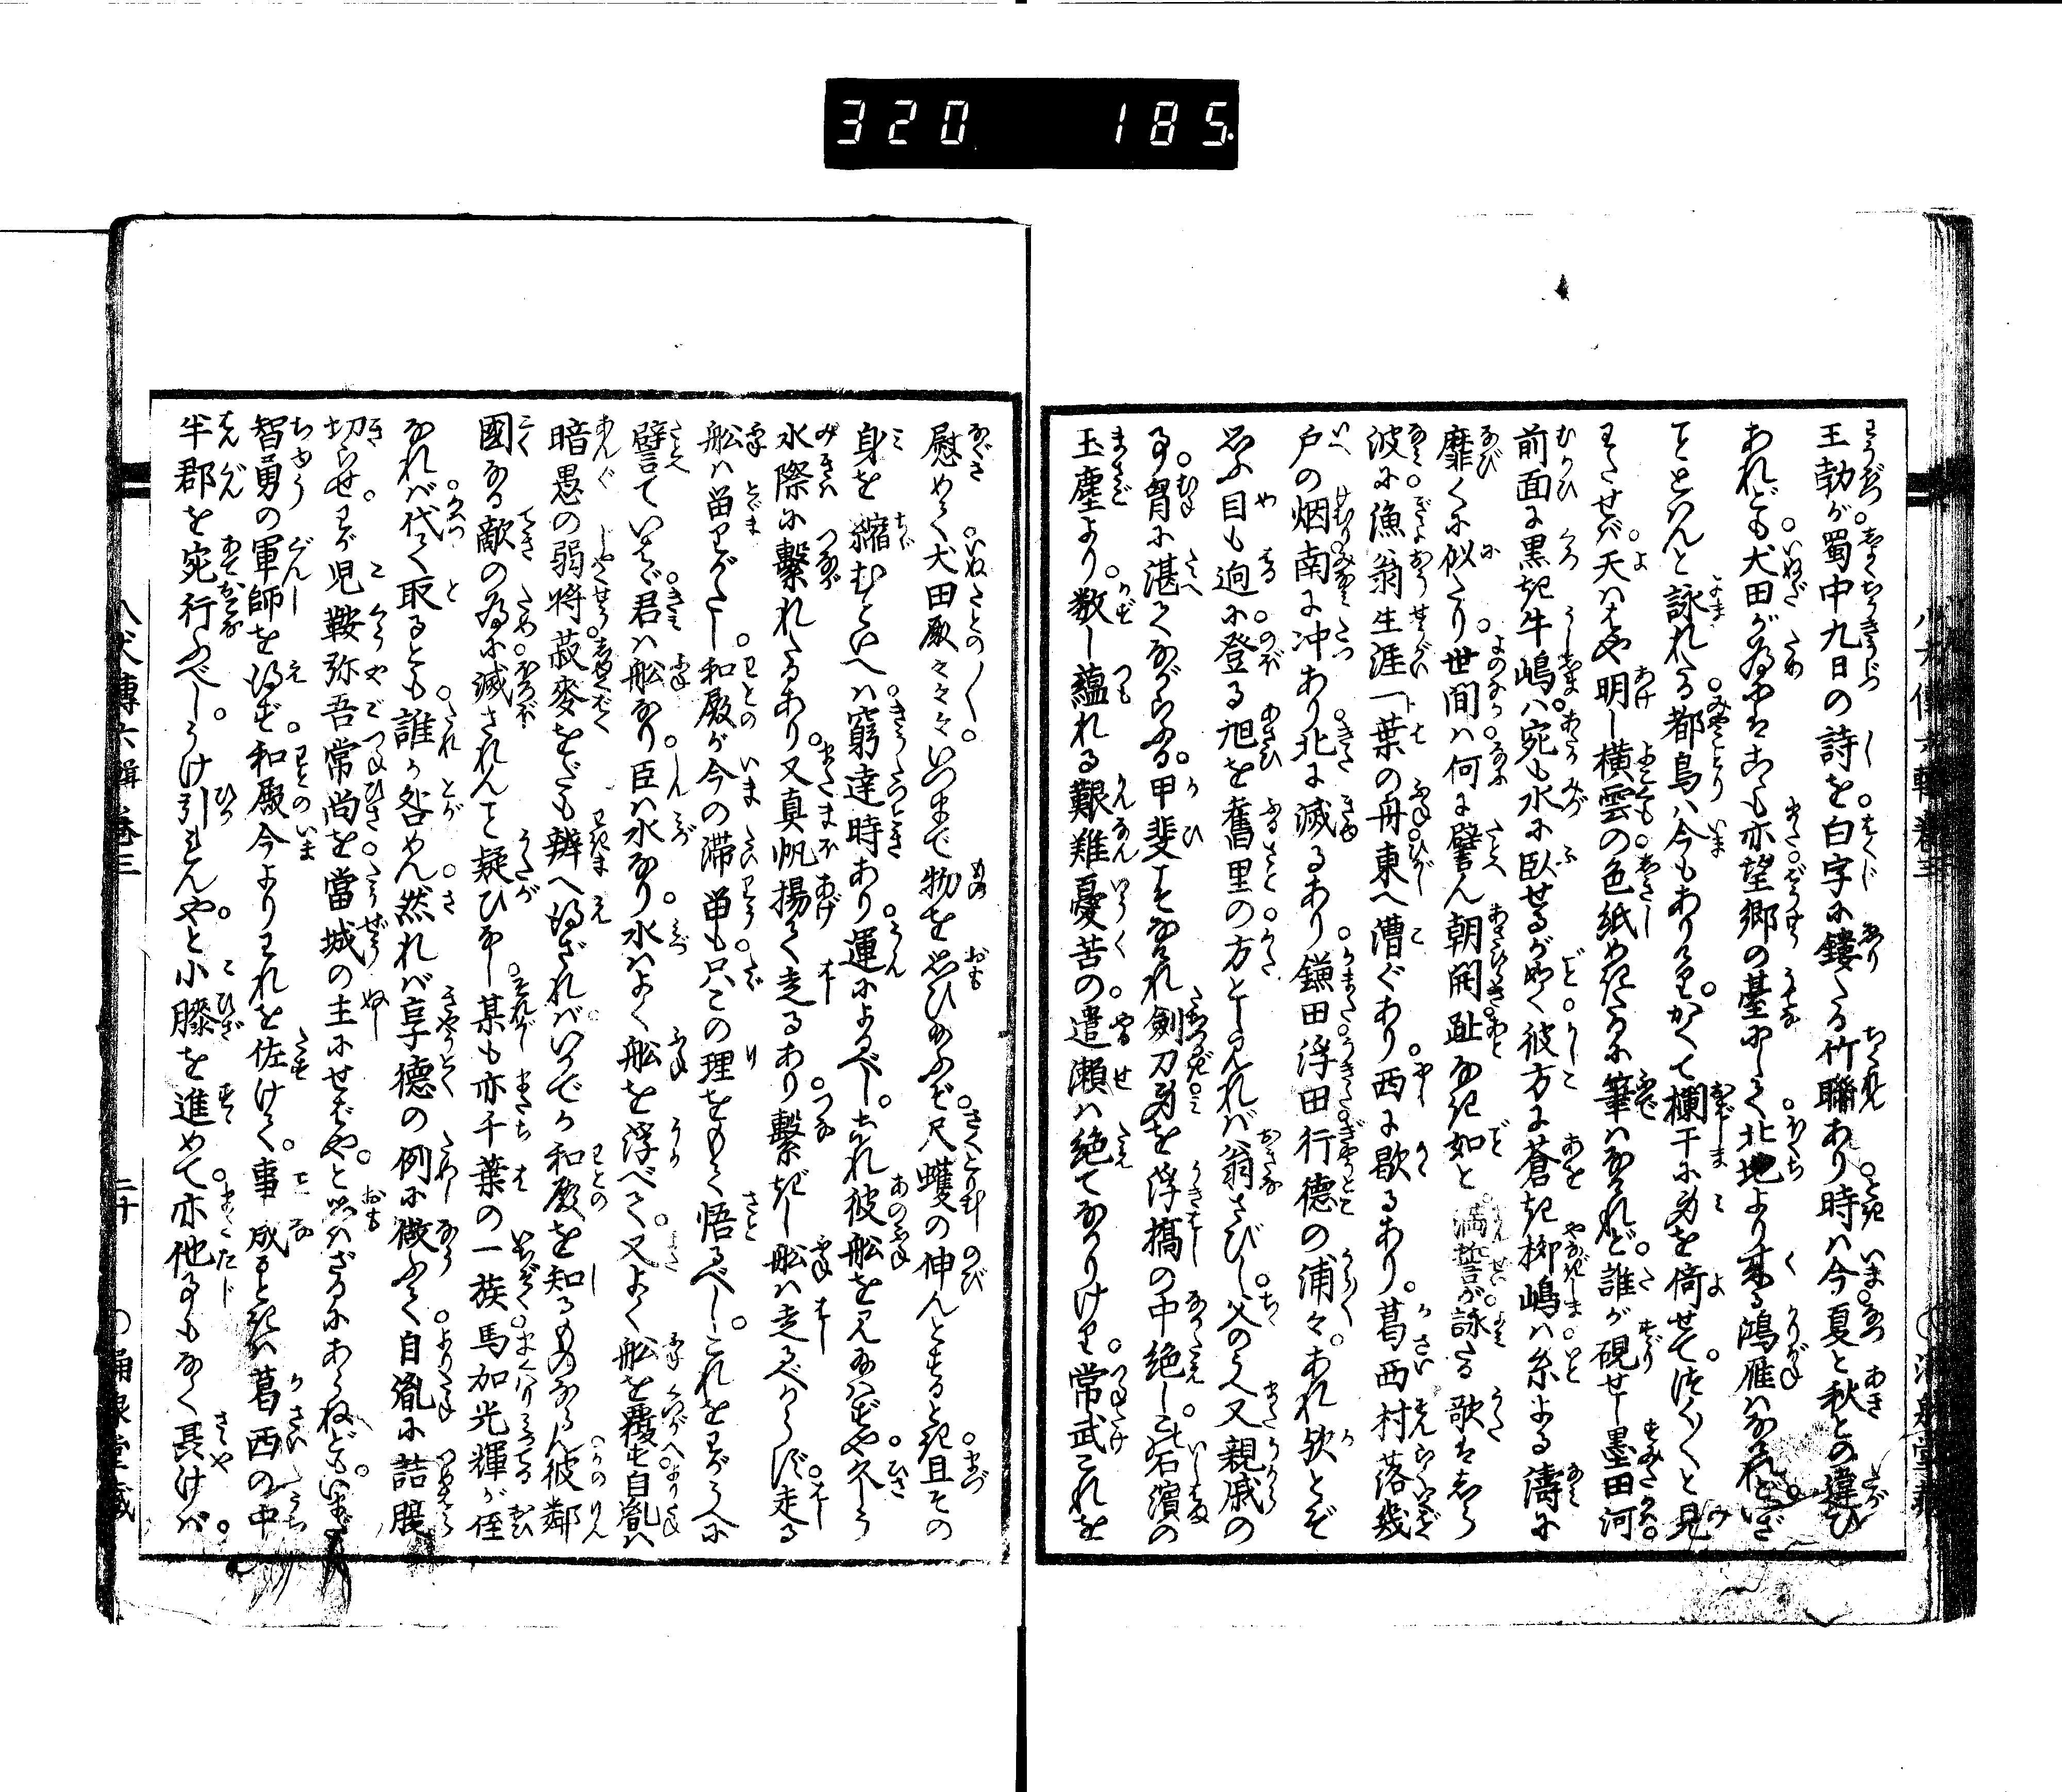 320 185
王勃が蜀中九日の詩を白字に鏤たる竹聯あり時は今夏と秋との違ひ
あれども犬田が為にはこも亦望郷の臺にして北地より来る鴻雁はなけれどいざ
こととはんと詠れたる都鳥は今もありけりかくて欄干に身を倚せてつくづくと見
わたせば天ははや明し横雲の色紙めきたるに筆はなけれど誰が硯せし墨田河
前面に黒き牛嶋は宛も水に臥せるが如く彼方に蒼き柳嶋は糸よる濤に
靡くに似たり世間は何に譬ん朝開趾なき如と満誓が詠たる歌はしら
波に漁翁生涯一葉の舟東へ漕ぐあり西に歇るあり葛西村落幾
戸の烟南に冲あり北に滅るあり鎌田浮田行徳の浦々あれ欤とぞ
思ふ目も迥に登る旭を舊里の方として見れば翁さびし父のうへ又親戚の
事胷に湛えてながらふる甲斐もなけれ劍刀身を浮橋の中絶し石濱の
玉塵より数し蘊れる艱難憂苦の遣瀬は絶てなかりけり常武これを
慰めて犬田殿々々々いつまで物を思ひ給ふぞ尺蠖の伸んとするとき且その
身を縮むといへは窮達時あり運によるべしあれ彼船を見給はずや久しう
水際に繋れたるあり又真帆揚て走るあり繋ぎし船は走るべからず走る
船は畄りがたし和殿が今の滞畄も只この理をもて悟るべしこれをわがうへに
譬ていはゞ君は船なり臣は水なり水はよく船を浮べて又よく船を覆す自胤は
暗愚の弱将菽麥をだも辨へ得ざればいかでか和殿を知るものならん彼鄰
國なる敵の為に滅されんと疑ひなし某も亦千葉の一族馬加光輝が侄
なれば代て取るとも誰か咎めん然れば享徳の例に倣ふて自胤に詰腹
切らせわが児鞍弥吾常尚を當城の主にせばやと思はざるにあらねどもいまだ
智勇の軍師を得ず和殿今よりわれを佐けて事成るときは葛西の中
半郡を宛行ふべしうけ引れんやと小膝を進めて亦他事もなく聶けば
八犬傳六輯巻三
二十